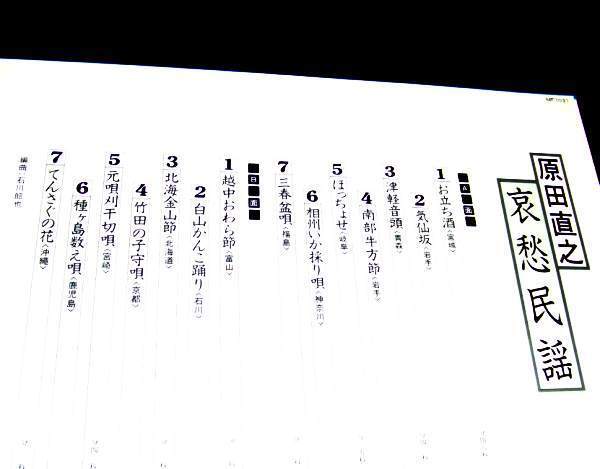 原田直之
哀愁民謡
A面
1 お立ち酒〈宮城〉
2 気仙坂〈岩手〉
3 津軽音頭〈青森〉
4 南部牛方節〈岩手〉
5 ほっちょせ〈岐阜〉
6 相州いか採り唄〈神奈川〉
7 三春盆唄〈福島〉
B面
1 越中おわら節〈富山〉
2 白山かんこ踊り〈石川〉
3 北海金山節〈北海道〉
4 竹田の子守唄〈京都〉
5 元唄刈干切唄〈宮崎〉
6 種ヶ島数え唄〈鹿児島〉
7 てんさぐの花〈沖縄〉
編曲・石川皓也